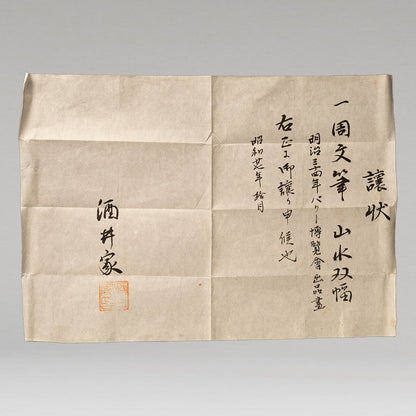 讓状
一 周文筆 山水双幅
明治三十四年パリー博覧會出品畫
右正に御讓り申候也
昭和年拾月
酒井家